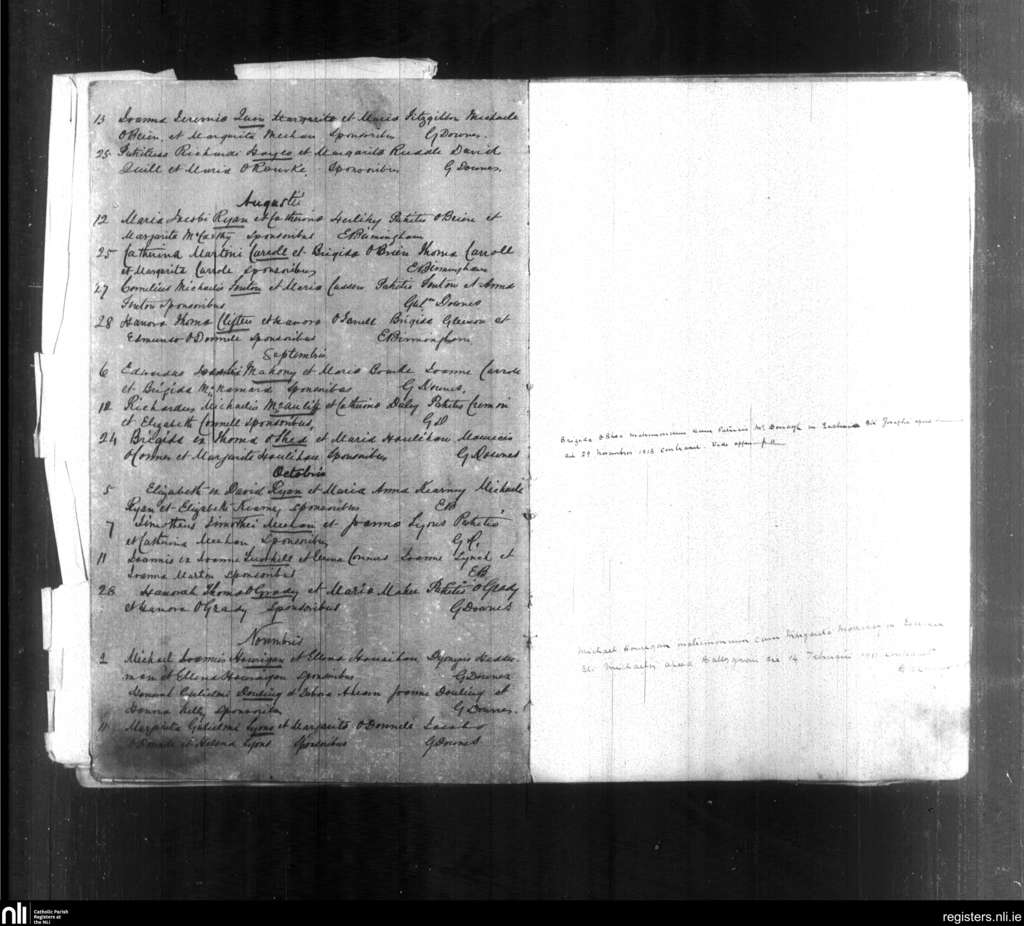 13 Joanna Jeremia Quan Margarita et Maria Fitzgibbon Michaele
O'Brien, et Margarita Meehan Sponsoribus G Downes.
25 Patritius Richardi Hayes et Margarita Ruddle David
Quill et Maria O'Rourke Sponsoribus G Downes
Augusti
12 Maria Jacobi Ryan et Catherina Patritio O'Brien et
Margarita McCarthy Sponsoribus E Bermingham
25 Catherina Martini Carroll et Brigida O'Brien Thoma Carroll
et Margarita Carrole Sponsoribus E Bermingham
27 Cornelius Michaelis Fenton et Maria Cussen Patritio Fenton et Anna
Fenton Sponsoribus Gulm Downes
28 Hanora Thoma et Hanora Brigida Gleeson et
Edmundo O'Donnell Sponsoribus E Bermingham
Septembris
6 Edwardus Mahony et Maria Joanne Carrole
et Brigida McNamara Sponsoribus G Downes.
12 Richardus Michaelis McAuliff et Catherina Daly Patritio
et Elizabeth Connell Sponsoribus, GD
24 Brigida ex Thoma O'Shea et Maria Houlihan Mauricio
O'Connor et Margarita Houlihan Sponsoribus G Downes
Octobris
5 Elizabeth ex David Ryan et Maria Anna Kearney Michaele
Ryan et Elizabeth Kearney Sponsoribus EB
7 Timotheus Timothei Meehan et Joanna Lyons Patritio
et Catherina Meehan Sponsoribus G
11 Joannis ex Joanne et Connors Joanne Lynch et
Joanna Martin Sponsoribus EB
28 Hanorah Thoma O'Grady et Maria Maher Patritio O'Grady
et Hanora O'Grady Sponsoribus G Downes
Novembris
2 Michael Joannis Hourigan et Ellena Dyonisio
et Ellena Hourigan Sponsoribus G Downes
Honora Gulielmi Dowling et Ahearn Joanne Dowling et
Hanora Kelly Sponsoribus G Downes.
11 Margarita Gulielmi Lyons et Margarita O'Donnell Jacobo
O'Donnell et Helena Lyons Sponsoribus G Downes
Brigida O'Shea matrimonium cum Patricio McDonagh in Ecclesia Sti Josephi apud
die 29 Novembris 1913 contraxit. Vide
Michael Hourigan matrimonium cum Margarita in Ecclesia
Sti Michaelis apud die 14 Februarii 1911 contraxit
nli Catholic Parish
Registers at
the NLI
registers.nli.ie